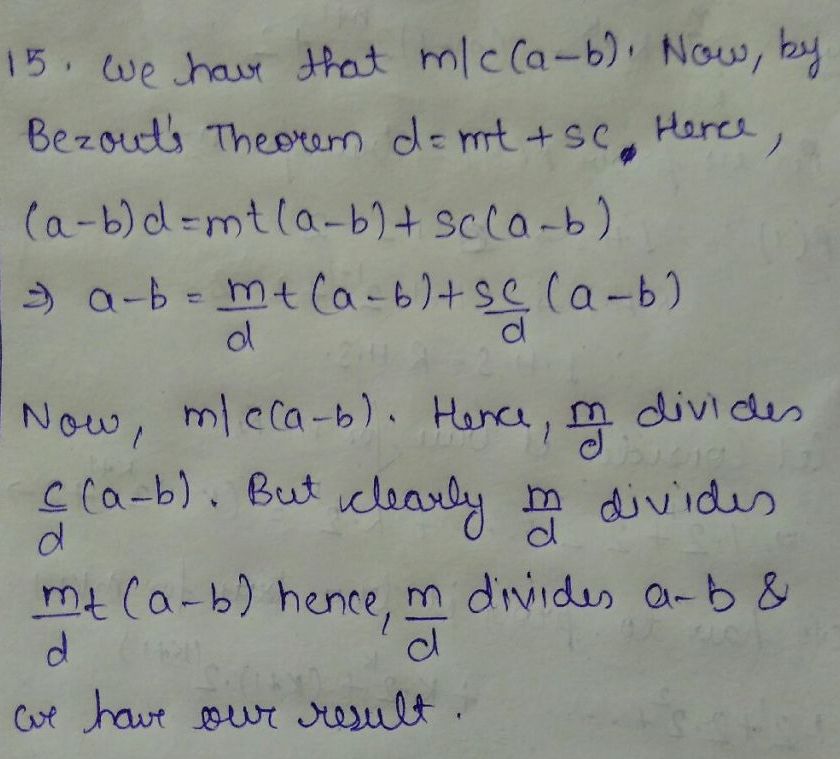 15. We have that m|c(a-b). Now, by
Bezout's Theorem d=mt+sc. Hence,
(a-b)d=mt(a-b)+sc(a-b)
⇒ a-b = m/d t(a-b)+sc/d (a-b)
Now, m|c(a-b). Hence, m/d divides
c/d (a-b). But clearly m/d divides
m/d t(a-b) hence, m/d divides a-b &
we have our result.